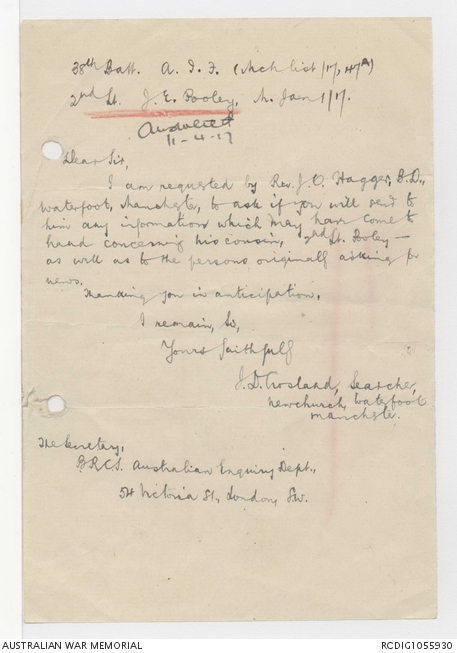 38th Batt. A. I. F. (Mch list/17, 47A)
2nd Lt. J. E. Pooley, M. Jan 1/17.
Answered
11-4-17
Dear Sir,
I am requested by Rev. J. O. Hagger, B.D.,
Waterfoot, Manchester, to ask if you will send to
him any information which may have come to
hand concerning his cousin, 2nd Lt. Pooley —
as well as to the persons originally asking for
news.
Thanking you in anticipation,
I remain, Sir,
Yours faithfully
J. D. Crosland, Searcher,
Newchurch, Waterfoot
Manchester.
The Secretary,
B.R.C.S. Australian Enquiry Dept.,
54 Victoria St., London, S.W.
AUSTRALIAN WAR MEMORIAL
RCDIG1055930